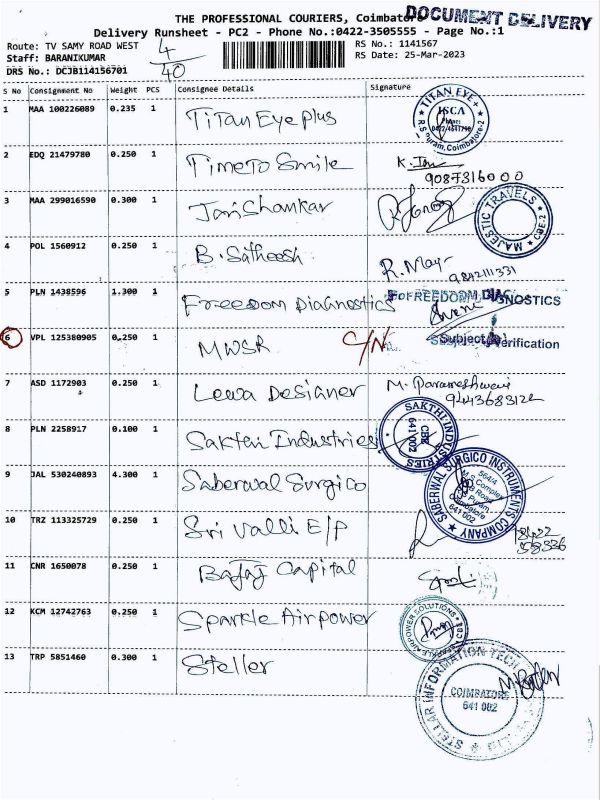 THE PROFESSIONAL COURIERS, Coimbatore
DOCUMENT DELIVERY
Delivery Runsheet - PC2 - Phone No.:0422-3505555 - Page No.:1
Route: TV SAMY ROAD WEST
Staff: BARANIKUMAR
DRS No.: DCJB114156701
4/40
RS No.: 1141567
RS Date: 25-Mar-2023
S No Consignment No Weight PCS Consignee Details Signature
1 MAA 100226089 0.235 1 Titan Eye Plus
TITAN EYE+
2 EDQ 21479780 0.250 1 Time To Smile
9087316000
3 MAA 299016590 0.300 1 Jai Shankar
MAJESTIC TRAVELS CBE-2
4 POL 1560912 0.250 1 B. Satheesh R. May
9842111331
5 PLN 1438596 1.300 1 Freedom Diagnostics For FREEDOM DIAGNOSTICS
Subject to Verification
6 VPL 125380905 0.250 1 MWSR C/N
7 ASD 1172903 0.250 1 Lewa Designer M. Parameshwari
9443683122
8 PLN 2258917 0.100 1 Sakthi Industries
SAKTHI INDUSTRIES CBE 641 002
9 JAL 530240893 4.300 1 Saberwal Surgico
SABERWAL SURGICO INSTRUMENTS COMPANY
Coimbatore 641 002
10 TRZ 113325729 0.250 1 Sri Valli E/P
11 CNR 1650078 0.250 1 Bajaj Capital
12 KCM 12742763 0.250 1 Sparkle Airpower
SPARKLE AIRPOWER SOLUTIONS CBE
13 TRP 5851460 0.300 1 Steller
STELLAR INFORMATION TECH
COIMBATORE
641 002